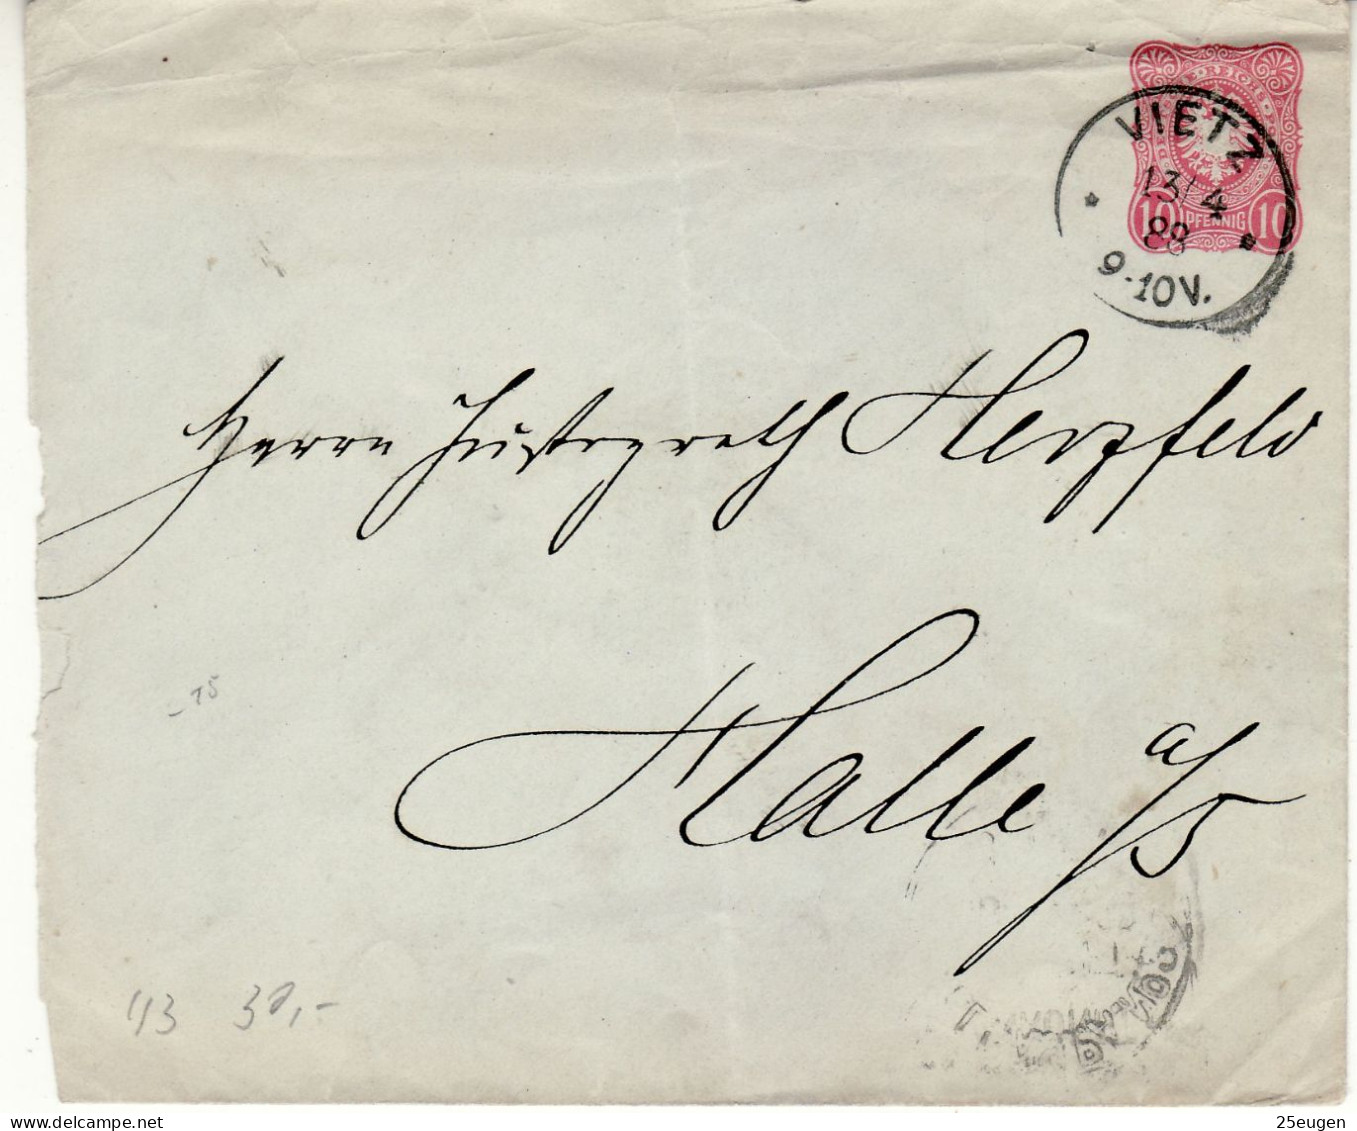 REICHS
10 PFENNIG 10
VIETZ
13/4
88
9-10V.
Herrn Justizrath Herzfeld
Halle a/S
43 30,-
delcampe.net
25eugen